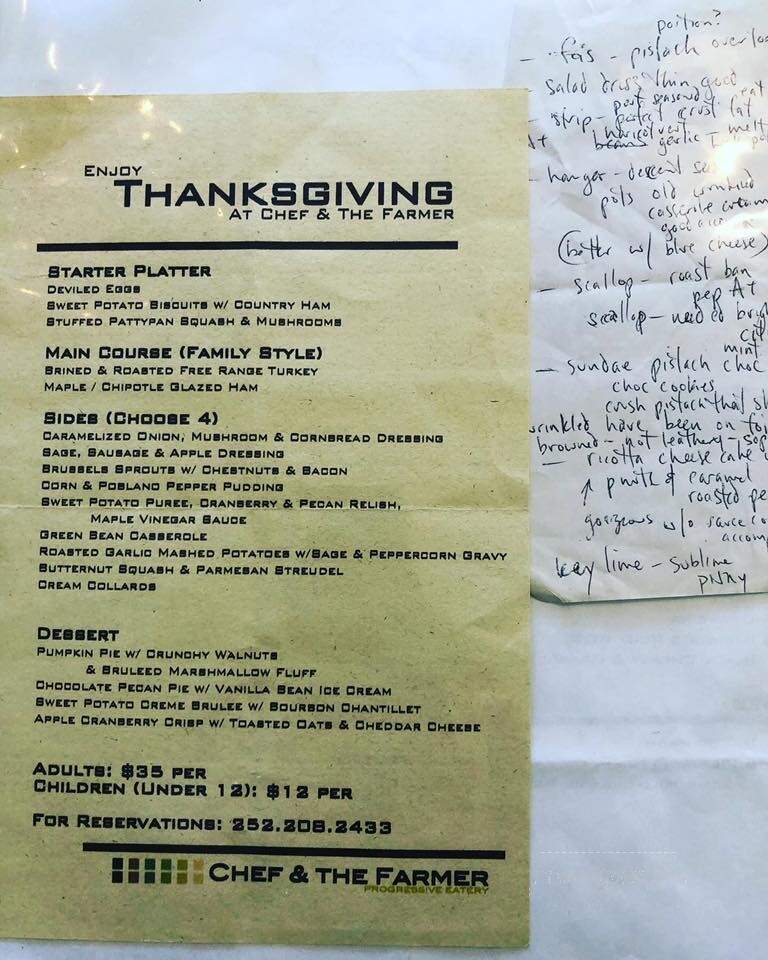 ENJOY
THANKSGIVING
AT CHEF & THE FARMER
STARTER PLATTER
DEVILED EGGS
SWEET POTATO BISCUITS W/ COUNTRY HAM
STUFFED PATTYPAN SQUASH & MUSHROOMS
MAIN COURSE (FAMILY STYLE)
BRINED & ROASTED FREE RANGE TURKEY
MAPLE / CHIPOTLE GLAZED HAM
SIDES (CHOOSE 4)
CARAMELIZED ONION, MUSHROOM & CORNBREAD DRESSING
SAGE, SAUSAGE & APPLE DRESSING
BRUSSELS SPROUTS W/ CHESTNUTS & BACON
CORN & POBLANO PEPPER PUDDING
SWEET POTATO PUREE, CRANBERRY & PECAN RELISH,
MAPLE VINEGAR SAUCE
GREEN BEAN CASSEROLE
ROASTED GARLIC MASHED POTATOES W/SAGE & PEPPERCORN GRAVY
BUTTERNUT SQUASH & PARMESAN STREUDEL
CREAM COLLARDS
DESSERT
PUMPKIN PIE W/ CRUNCHY WALNUTS
& BRULEED MARSHMALLOW FLUFF
CHOCOLATE PECAN PIE W/ VANILLA BEAN ICE CREAM
SWEET POTATO CREME BRULEE W/ BOURBON CHANTILLET
APPLE CRANBERRY CRISP W/ TOASTED OATS & CHEDDAR CHEESE
ADULTS: $35 PER
CHILDREN (UNDER 12): $12 PER
FOR RESERVATIONS: 252.208.2433
CHEF & THE FARMER
PROGRESSIVE EATERY
portion?
- fois - pistach
salad good
- strip - crust fat
garlic - melt
- hanger - decent
old
casserole
(better w/ blue cheese)
- scallop - roast
pep A+
scallop - need
mint
- sundae pistach choc
choc cookies
crush pistach
have been on
browned - not leathery
- ricotta cheese cake
caramel
roasted
gorgeous w/o sauce
key lime - sublime